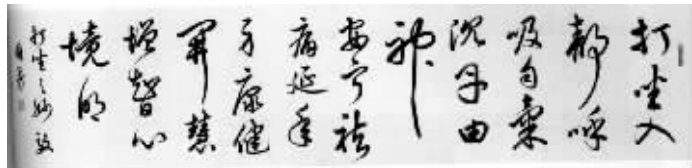 打坐入
静呼
吸自气
沉丹田
神
安宁祛
病延年
身康健
开慧
增智心
境明
打坐之妙